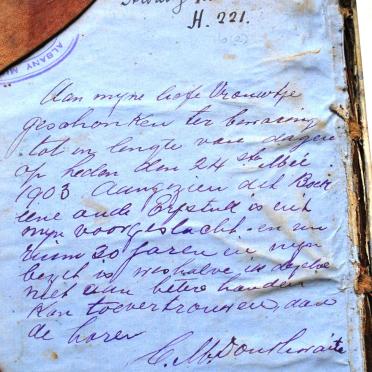 H. 221.
ALBANY
Aan mijne liefe Vrouwtje
geschonken ter bewaring
tot in lengte van dagen
op heden den 24ste Mei
1903 Aangezien dit Boek
eene oude Erfstuk is uit
mijn voorgeslacht en en
ruim 30 jaren in mijn
bezit is weshalve ik dezelve
niet aan beter handen
kan toevertrouwen, dan
de haren
C. M. Douthwaite